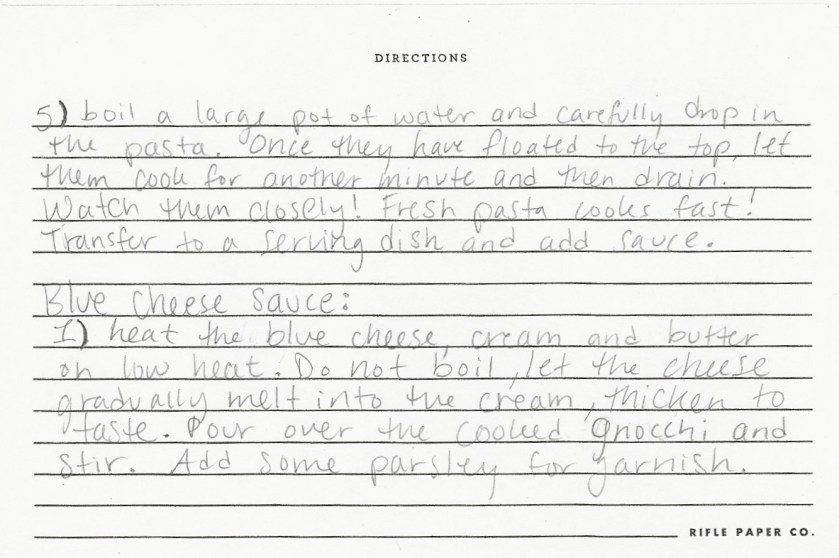 DIRECTIONS
5) boil a large pot of water and carefully drop in
the pasta. Once they have floated to the top, let
them cook for another minute and then drain.
Watch them closely! Fresh pasta cooks fast!
Transfer to a serving dish and add sauce.
Blue Cheese Sauce:
1) heat the blue cheese, cream and butter
on low heat. Do not boil, let the cheese
gradually melt into the cream, thicken to
taste. Pour over the cooked gnocchi and
stir. Add some parsley for garnish.
RIFLE PAPER CO.